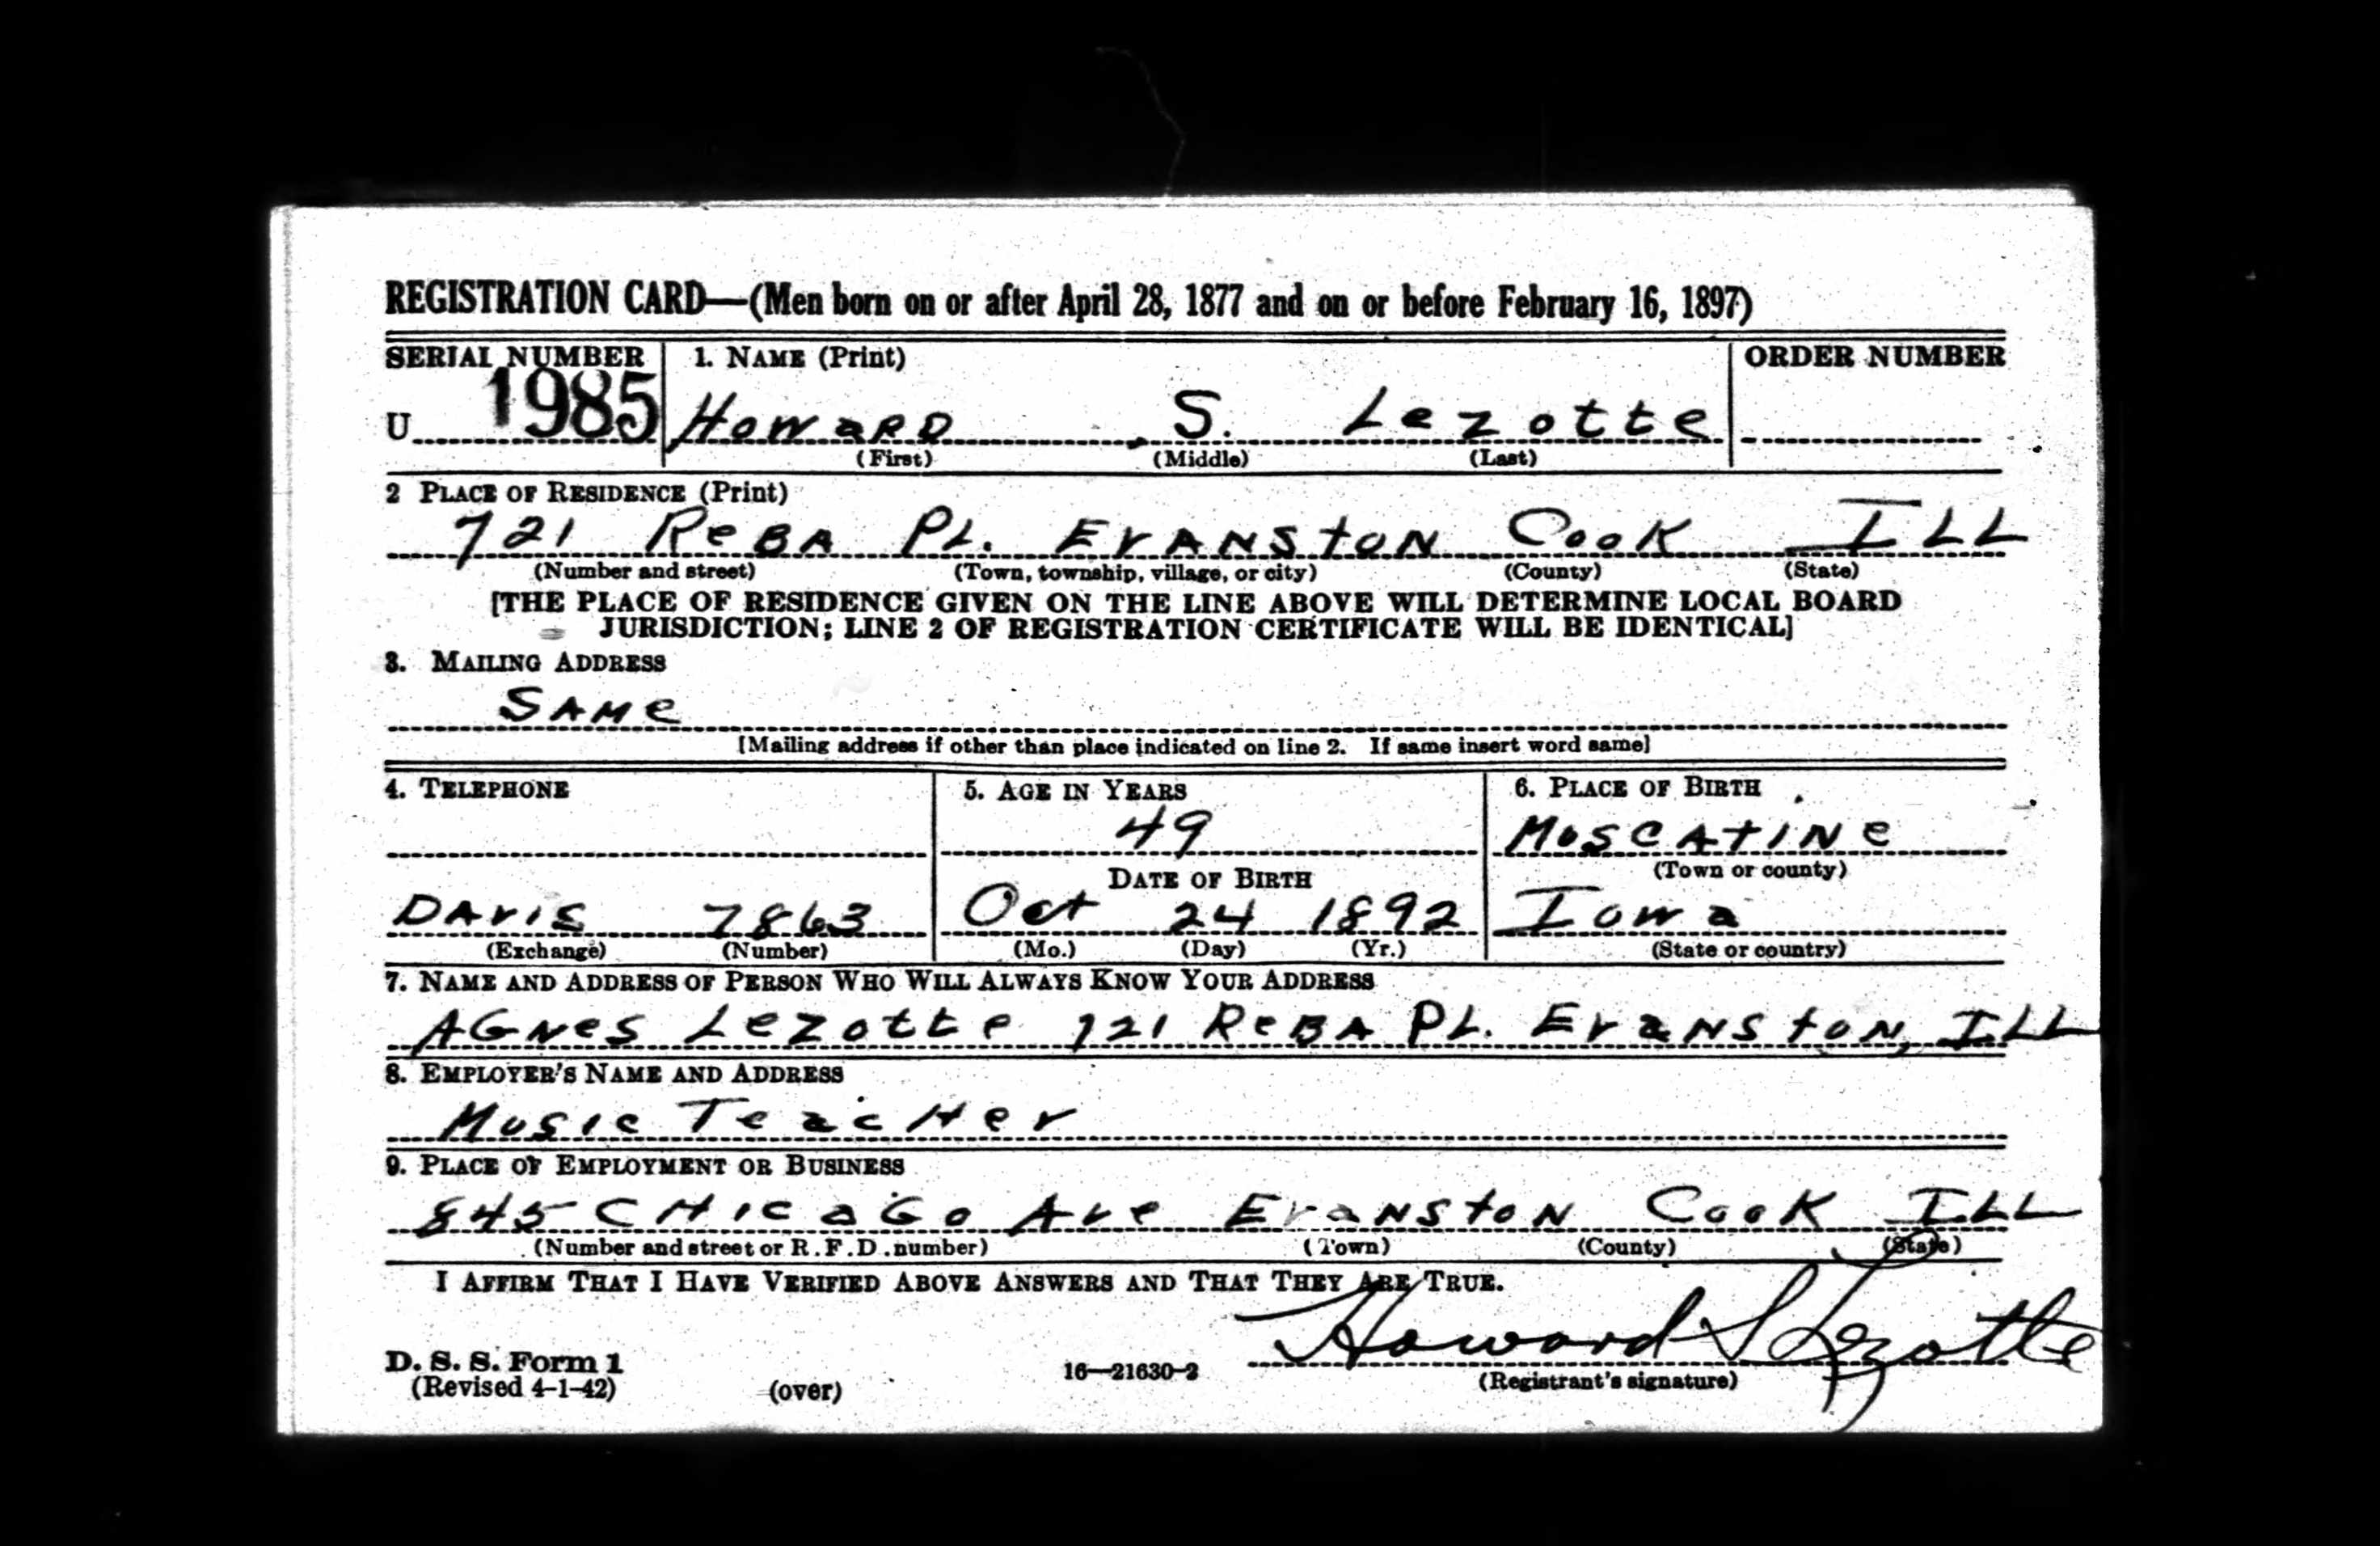 REGISTRATION CARD—(Men born on or after April 28, 1877 and on or before February 16, 1897)
SERIAL NUMBER 1. NAME (Print) ORDER NUMBER
U 1985 Howard S. Lezotte
(First) (Middle) (Last)
2 PLACE OF RESIDENCE (Print)
721 ReBA PL. EvANStoN Cook ILL
(Number and street) (Town, township, village, or city) (County) (State)
[THE PLACE OF RESIDENCE GIVEN ON THE LINE ABOVE WILL DETERMINE LOCAL BOARD
JURISDICTION; LINE 2 OF REGISTRATION CERTIFICATE WILL BE IDENTICAL]
3. MAILING ADDRESS
SAMe
[Mailing address if other than place indicated on line 2. If same insert word same]
4. TELEPHONE 5. AGE IN YEARS 6. PLACE OF BIRTH
49 MuSCAtINe
DATE OF BIRTH (Town or county)
DAvIS 7863 Oct 24 1892 Iowa
(Exchange) (Number) (Mo.) (Day) (Yr.) (State or country)
7. NAME AND ADDRESS OF PERSON WHO WILL ALWAYS KNOW YOUR ADDRESS
AGNeS Lezotte 721 ReBA PL. EvaNStoN, ILL
8. EMPLOYER'S NAME AND ADDRESS
Music TeacHer
9. PLACE OF EMPLOYMENT OR BUSINESS
845 CHIcaGo Ave EvaNStoN CooK ILL
(Number and street or R.F.D. number) (Town) (County) (State)
I AFFIRM THAT I HAVE VERIFIED ABOVE ANSWERS AND THAT THEY ARE TRUE.
Howard S Lezotte
D. S. S. Form 1 16—21630-2 (Registrant's signature)
(Revised 4-1-42) (over)